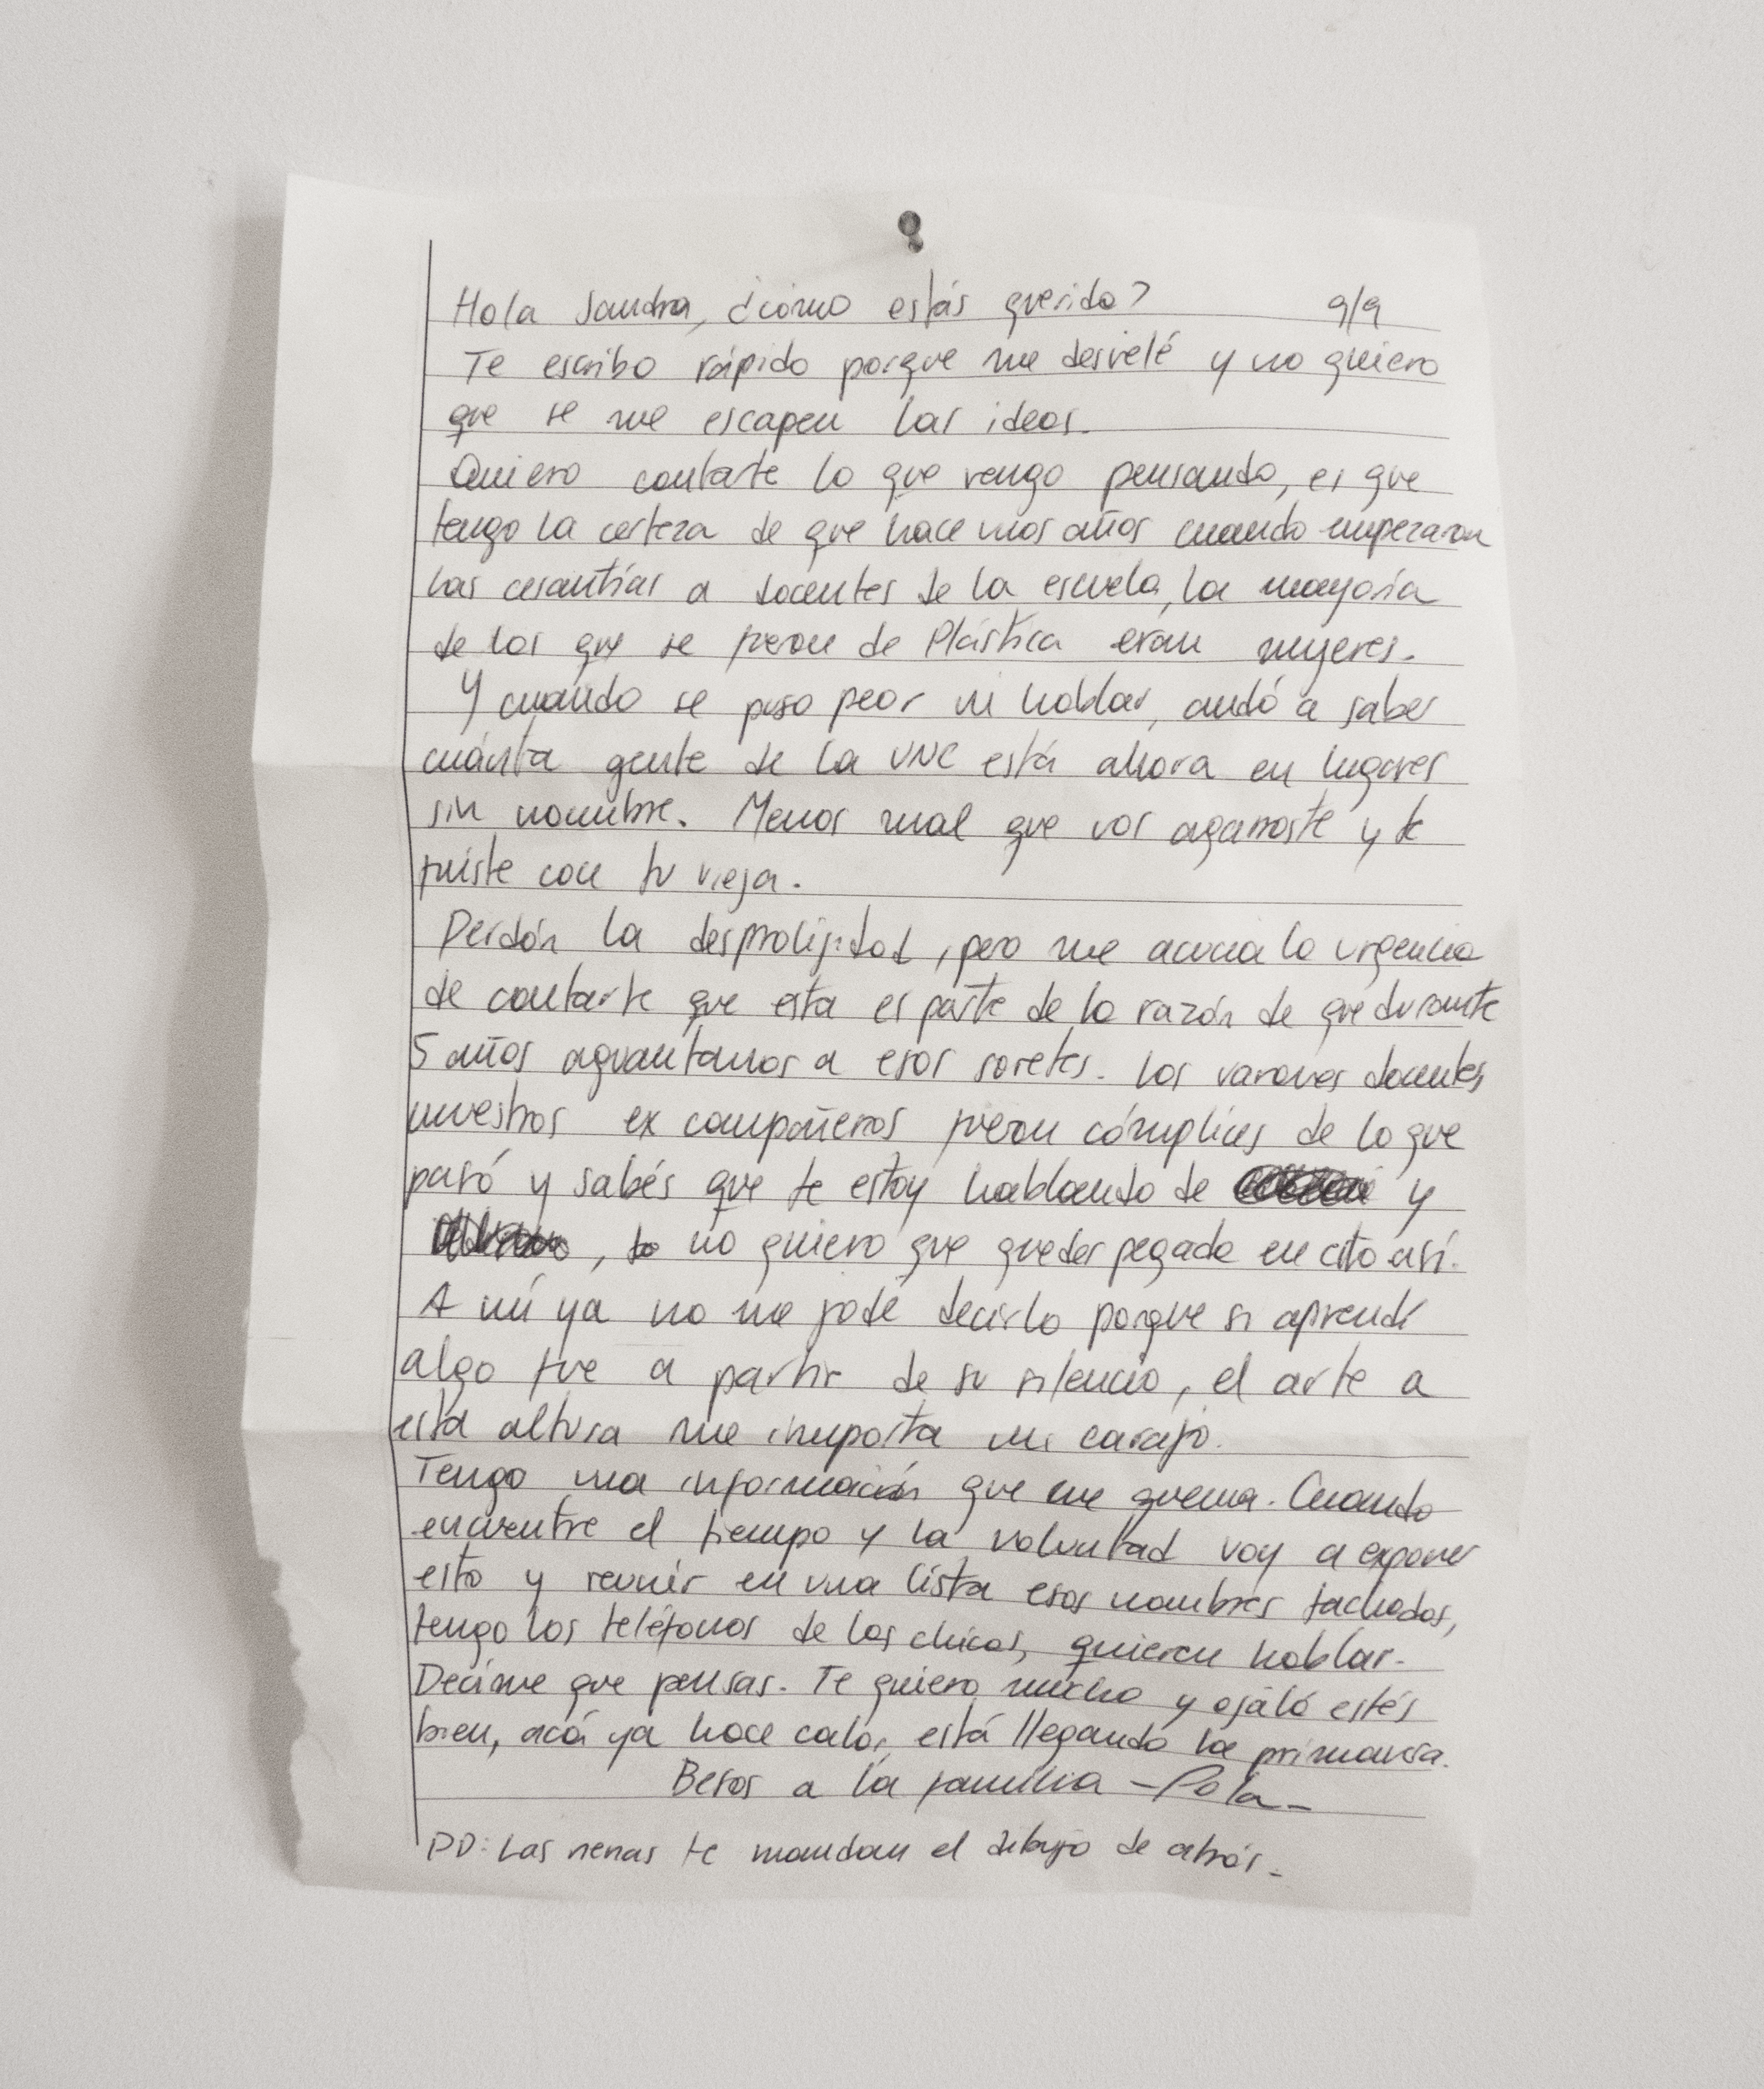 Hola Sandra, ¿cómo estás querida? 9/9
Te escribo rápido porque me desvelé y no quiero
que se me escapen las ideas.
Quiero contarte lo que vengo pensando, es que
tengo la certeza de que hace unos años cuando empezaron
las cesantías a docentes de la escuela, la mayoría
de los que se fueron de Plástica eran mujeres.
Y cuando se puso peor ni hablar, andá a saber
cuánta gente de la UNC está ahora en lugares
sin nombre. Menos mal que vos agarraste y te
fuiste con tu vieja.
Perdón la desprolijidad, pero me acucia la urgencia
de contarte que esta es parte de la razón de que durante
5 años aguantamos a esos soretes. Los varones docentes
nuestros ex compañeros fueron cómplices de lo que
pasó y sabés que te estoy hablando de y
, no quiero que quedes pegada en esto así.
A mí ya no me jode decirlo porque si aprendí
algo fue a partir de su silencio, el arte a
esta altura me importa un carajo.
Tengo una información que me quema. Cuando
encuentre el tiempo y la voluntad voy a exponer
esto y reunir en una lista esos nombres tachados,
tengo los teléfonos de los chicos, quieren hablar.
Decime que pensas. Te quiero mucho y ojalá estés
bien, acá ya hace calor, está llegando la primavera.
Besos a la familia - Pola -
PD: Las nenas te mandan el dibujo de atrás.